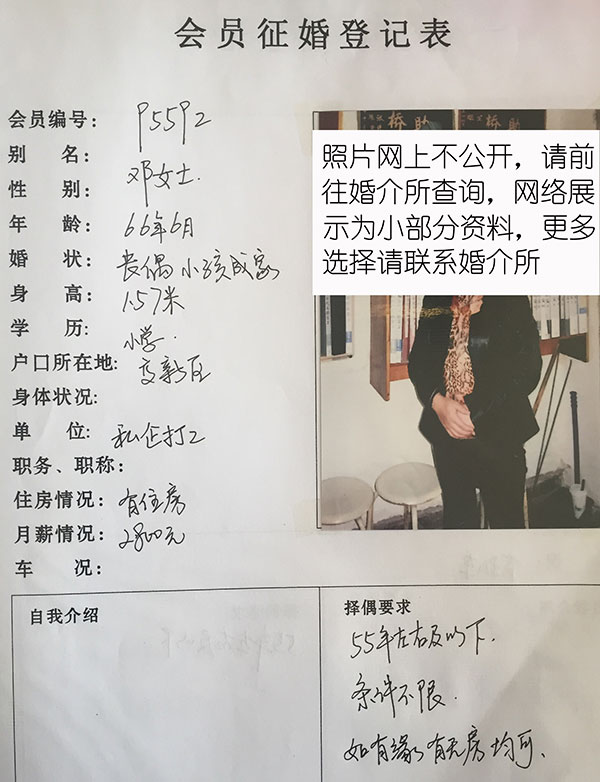 会员征婚登记表
会员编号: P55P2
别 名: 邓女士.
性 别:
年 龄: 66年6月
婚 状: 丧偶 小孩成家
身 高: 1.57米
学 历: 小学.
户口所在地: 高新区
身体状况:
单 位: 私企打工
职务、职称:
住房情况: 有住房
月薪情况: 2800元
车 况:
桥 助
照片网上不公开，请前
往婚介所查询，网络展
示为小部分资料，更多
选择请联系婚介所
自我介绍
择偶要求
55年左右及以下.
条件不限.
如有缘有无房均可、